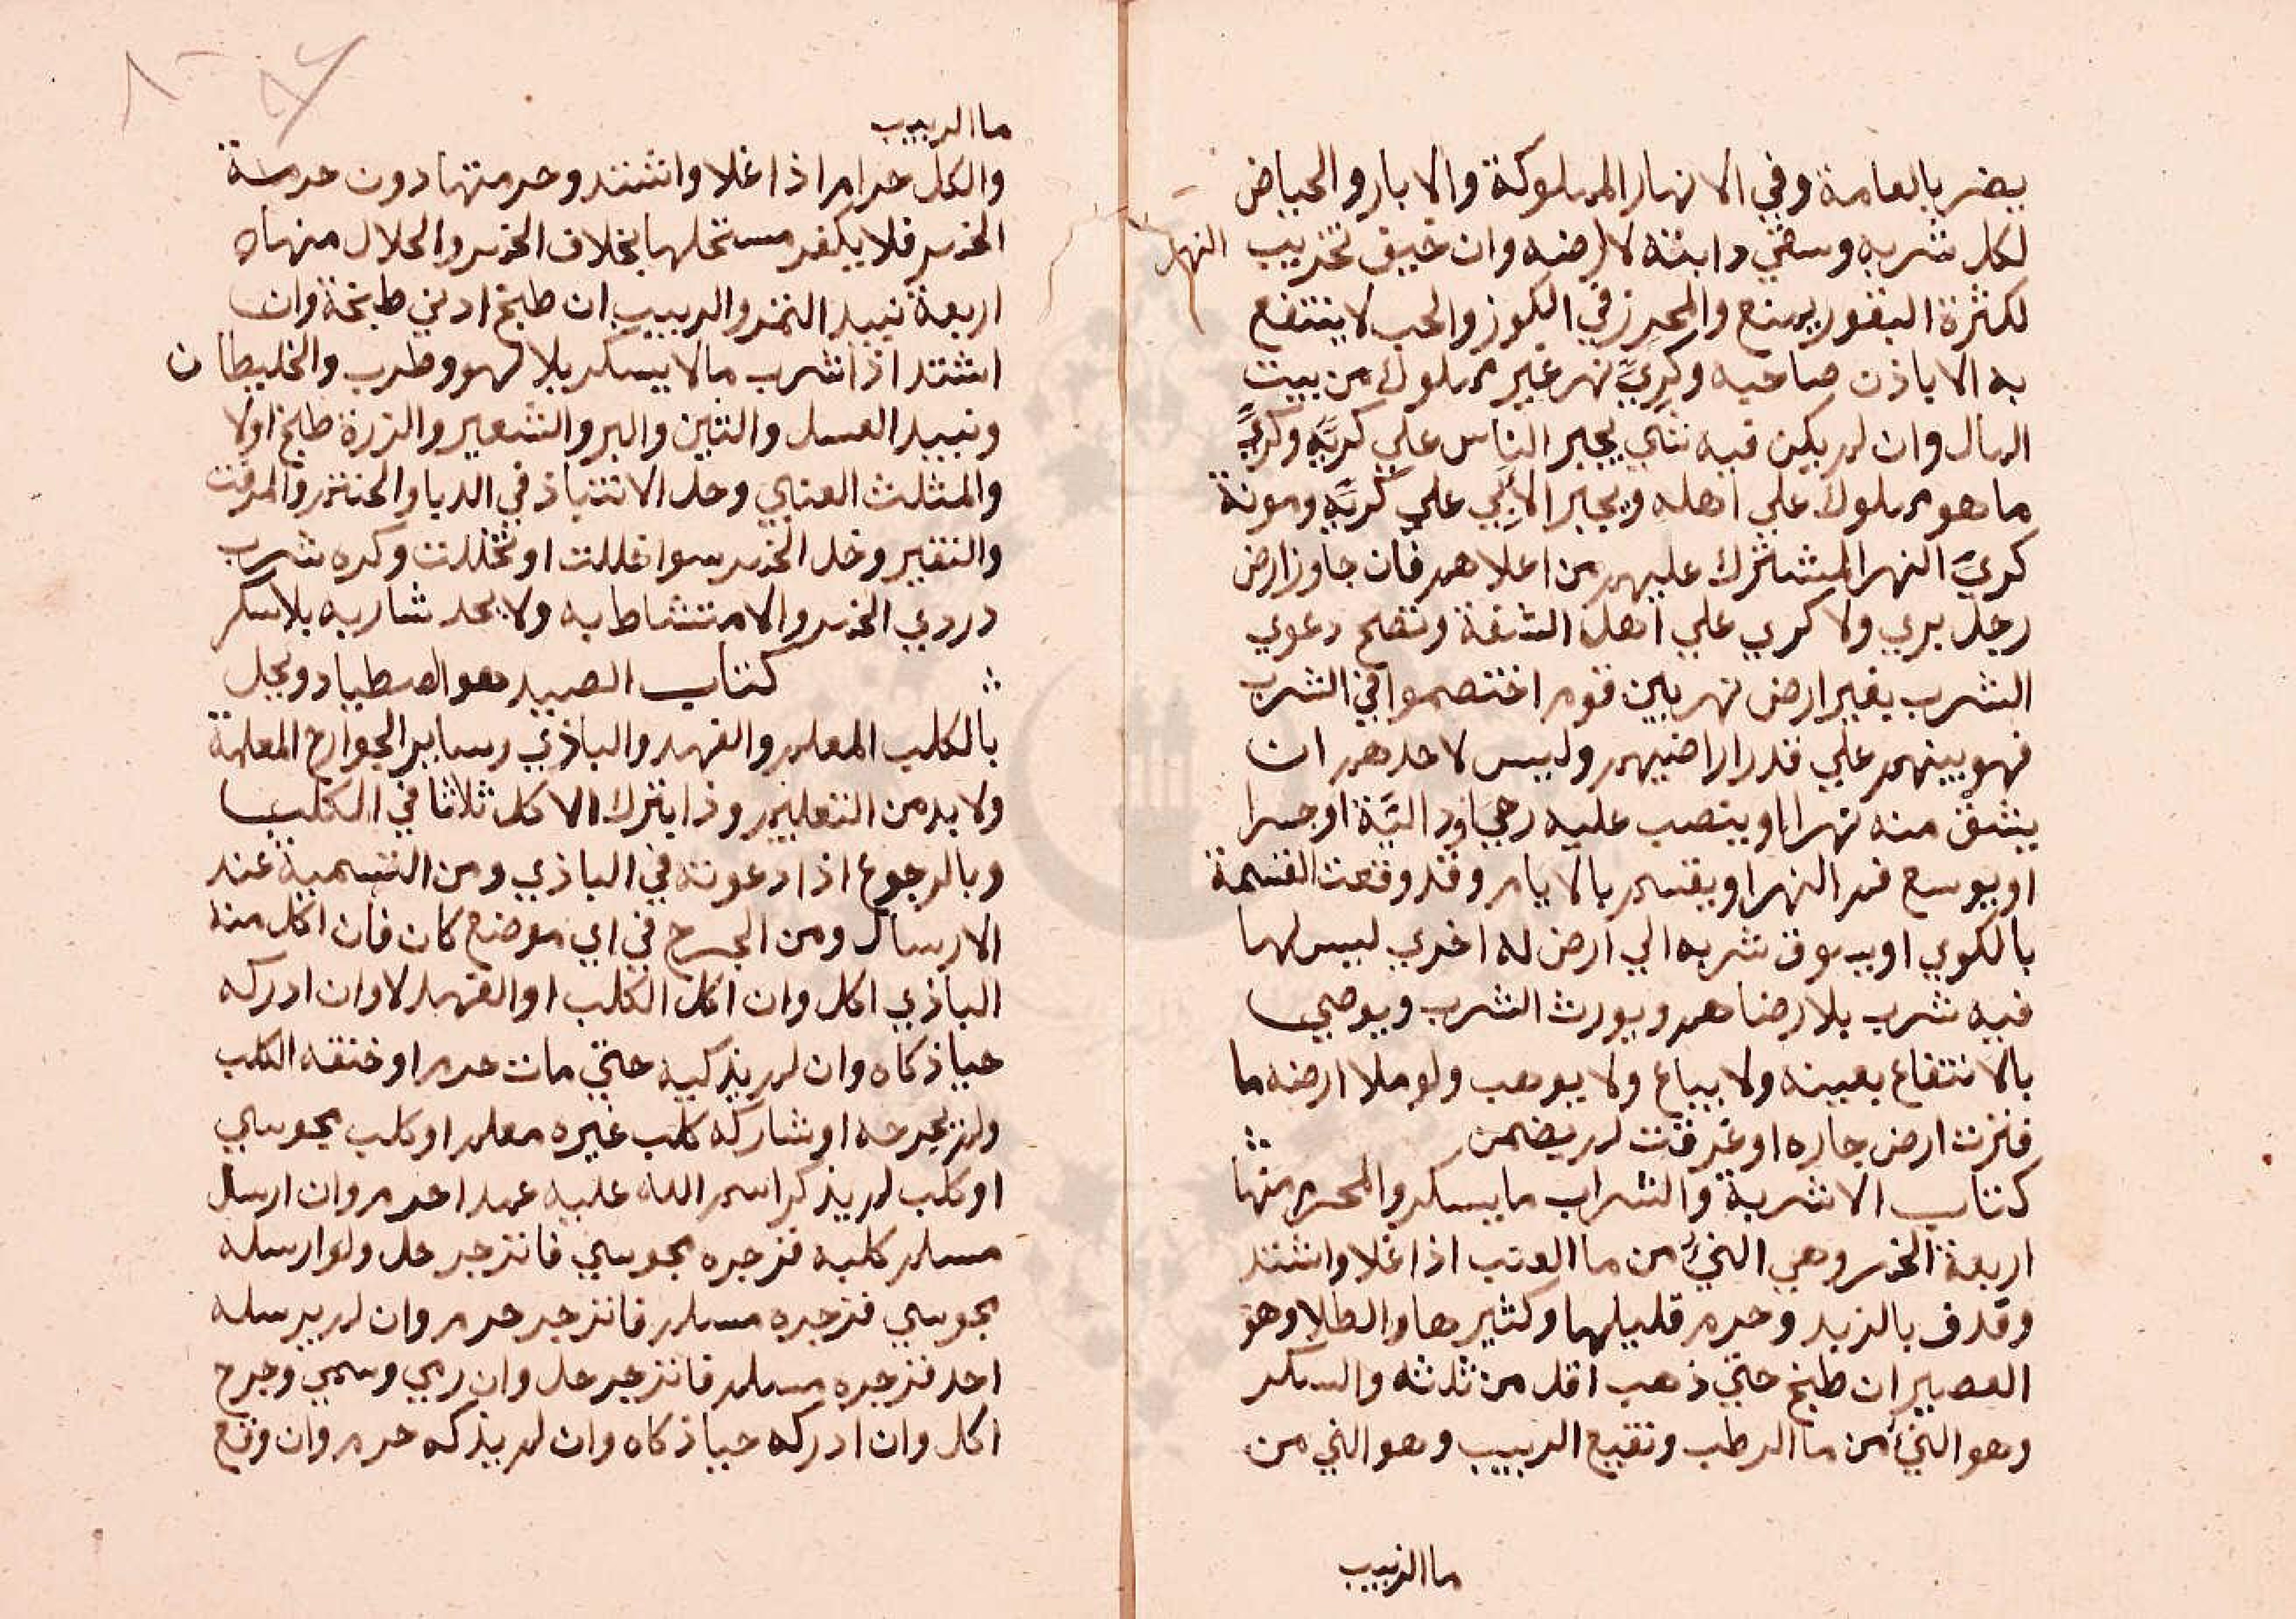 يضر بالعامة وفي الانهار المملوكة والابار والحياض
لكل شربه وسقي دابته لا ارضه وان خيف تخريب النهر
لكثرة البقور يمنع والمحرز في الكوز والحب لا ينتفع
به الا باذن صاحبه وكري نهر غير مملوك من بيت
المال وان لم يكن فيه شي يجبر الناس علي كريه وكري
ما هو مملوك علي اهله ويجبر الابي علي كريه ومونة
كري النهر المشترك عليهم من اعلاهم فان جاوز ارض
رجل بري ولا كري علي اهل الشفة وتصح دعوي
الشرب بغير ارض نهر بين قوم اختصموا في الشرب
فهو بينهم علي قدر اراضيهم وليس لاحدهم ان
يشق منه نهرا او ينصب عليه رحي او دالية او جسرا
او يوسع فم النهر او يقسم بالايام وقد وقعت القسمة
بالكوي او يسوق شربه الي ارض له اخري ليس لها
فيه شرب بلا رضاهم ويورث الشرب ويوصي
بالانتفاع بعينه ولا يباع ولا يوهب ولو ملا ارضه ما
فنزت ارض جاره او غرقت لم يضمن
كتاب الاشربة والشراب ما يسكر والمحرم منها
اربعة الخمر وهي الني من ما العنب اذا غلا واشتد
وقذف بالزبد وحرم قليلها وكثيرها والطلا وهو
العصير ان طبخ حتي ذهب اقل من ثلثه والسكر
وهو الني من ما الرطب ونقيع الزبيب وهو الني من
ما الزبيب
ما الزبيب
والكل حرام اذا غلا واشتد وحرمتها دون حرمة
الخمر فلا يكفر مستحلها بخلاف الخمر والحلال منها
اربعة نبيذ التمر والزبيب ان طبخ ادني طبخة وان
اشتد اذا شرب ما لا يسكر بلا لهو وطرب والخليطان
ونبيذ العسل والتين والبر والشعير والذرة طبخ او لا
والمثلث العنبي وحل الانتباذ في الدبا والحنتم والمزفت
والنقير وخل الخمر سوا خللت او تخللت وكره شرب
دردي الخمر والامتشاط به ولا يحد شاربه بلا سكر
كتاب الصيد هو الاصطياد ويحل
بالكلب المعلم والفهد والباذي وساير الجوارح المعلمة
ولا بد من التعليم وذا بترك الاكل ثلاثا في الكلب
وبالرجوع اذا دعوته في الباذي ومن التسمية عند
الارسال ومن الجرح في اي موضع كان فان اكل منه
الباذي اكل وان اكل الكلب او الفهد لا وان ادركه
حيا ذكاه وان لم يذكيه حتي مات حرم او خنقه الكلب
ولم يجرحه او شاركه كلب غيره معلم او كلب مجوسي
او كلب لم يذكر اسم الله عليه عمدا حرم وان ارسل
مسلم كلبه فزجره مجوسي فانزجر حل ولو ارسله
مجوسي فزجره مسلم فانزجر حرم وان لم يرسله
احد فزجره مسلم فانزجر حل وان رمي وسمي وجرح
اكل وان ادركه حيا ذكاه وان لم يذكه حرم وان وقع